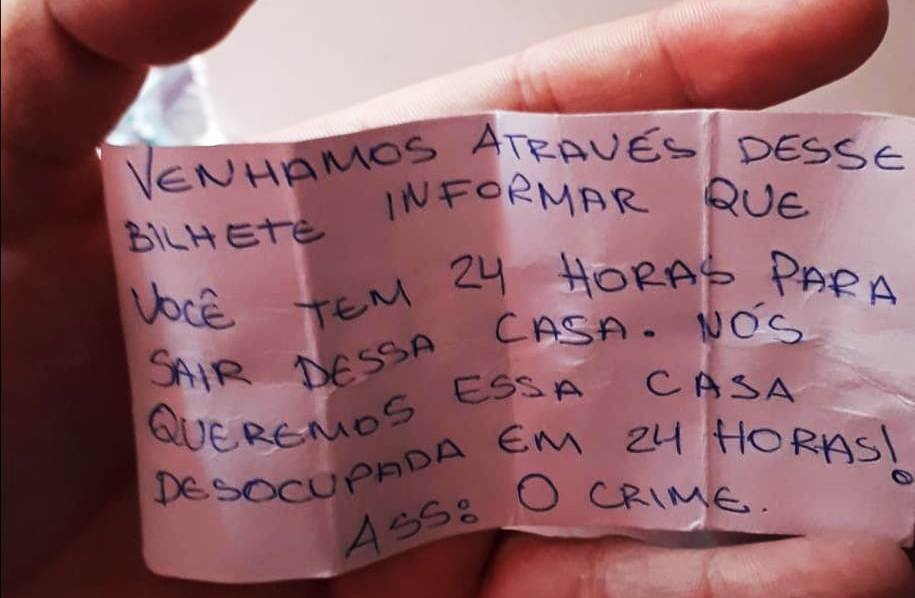 VENHAMOS ATRAVÉS DESSE
BILHETE INFORMAR QUE
VOCÊ TEM 24 HORAS PARA
SAIR DESSA CASA. NÓS
QUEREMOS ESSA CASA
DESOCUPADA EM 24 HORAS!
ASS: O CRIME.